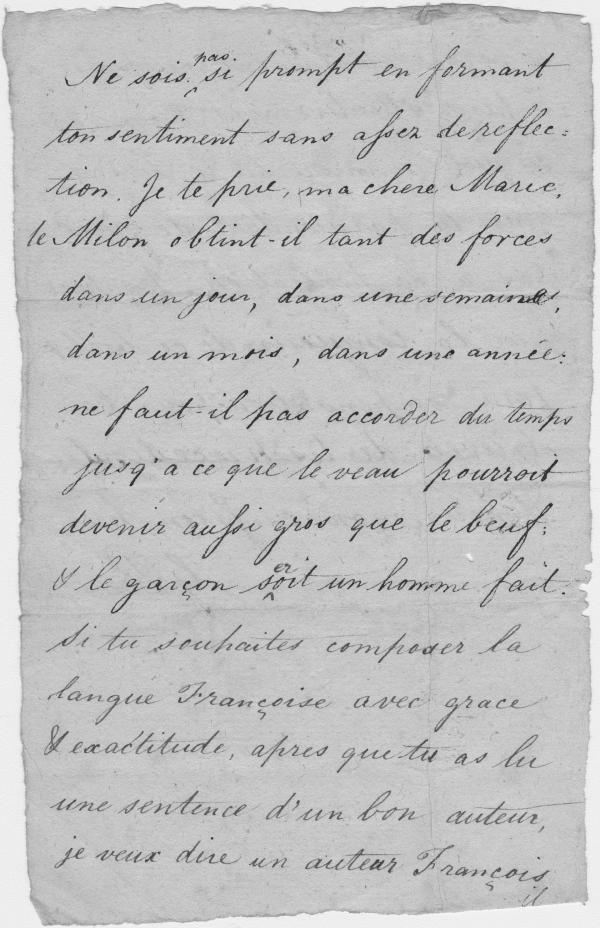 Ne sois pas si prompt en formant
ton sentiment sans assez de reflec=
tion. Je te prie, ma chere Marie,
le Milon obtint-il tant des forces
dans un jour, dans une semaine,
dans un mois, dans une année:
ne faut-il pas accorder du temps
jusq'a ce que le veau pourroit
devenir aussi gros que le beuf:
& le garçon seroit un homme fait.
Si tu souhaites composer la
langue Françoise avec grace
& exactitude, apres que tu as lu
une sentence d'un bon auteur,
je veux dire un auteur François
il